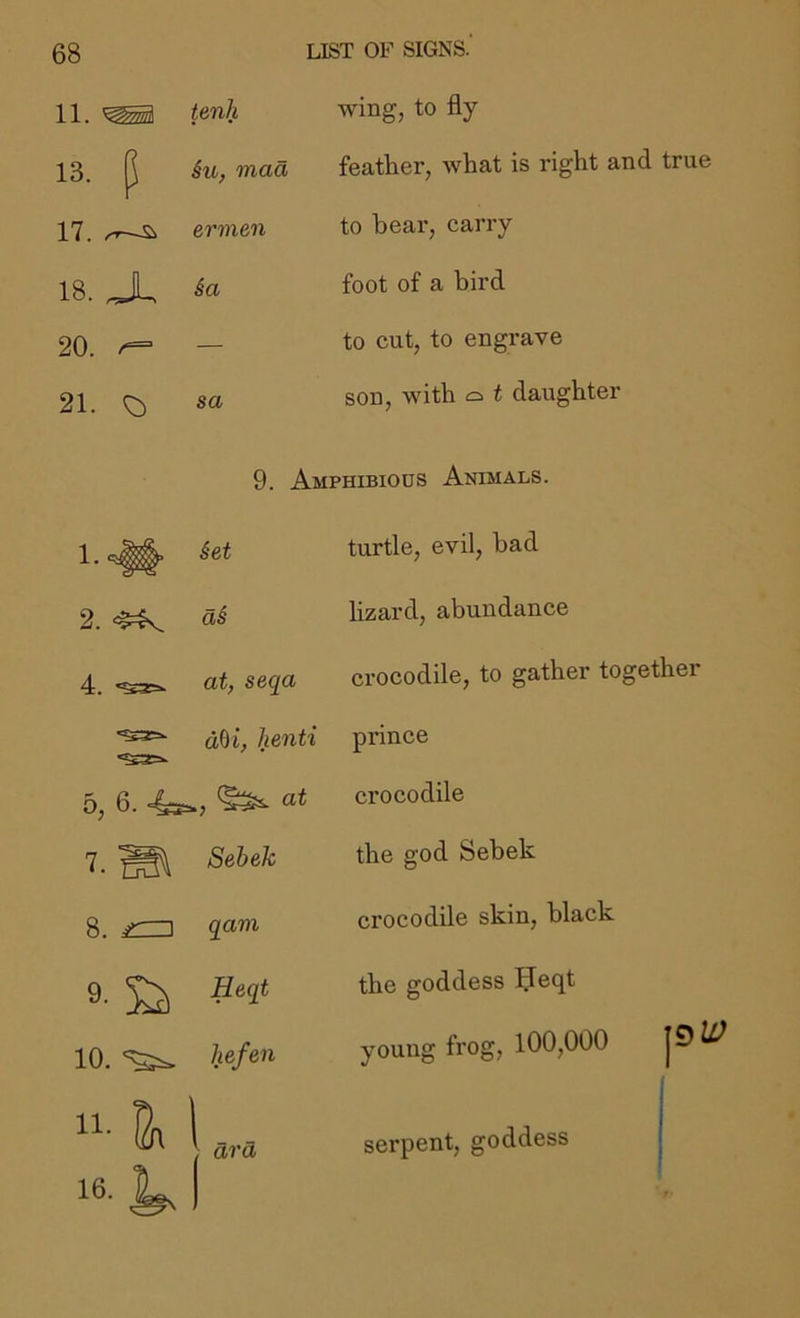 68 LIST OF SIGNS.
11. ṭenḥ wing, to fly
13. śu, maā feather, what is right and true
17. ermen to bear, carry
18. śa foot of a bird
20. — to cut, to engrave
21. sa son, with t daughter
9. AMPHIBIOUS ANIMALS.
1. śet turtle, evil, bad
2. āś lizard, abundance
4. at, seqa crocodile, to gather together
ȧθi, ḥenti prince
5, 6. , at crocodile
7. Sebek the god Sebek
8. qam crocodile skin, black
9. Ḥeqt the goddess Ḥeqt
10. ḥefen young frog, 100,000
11. ārā serpent, goddess
16.